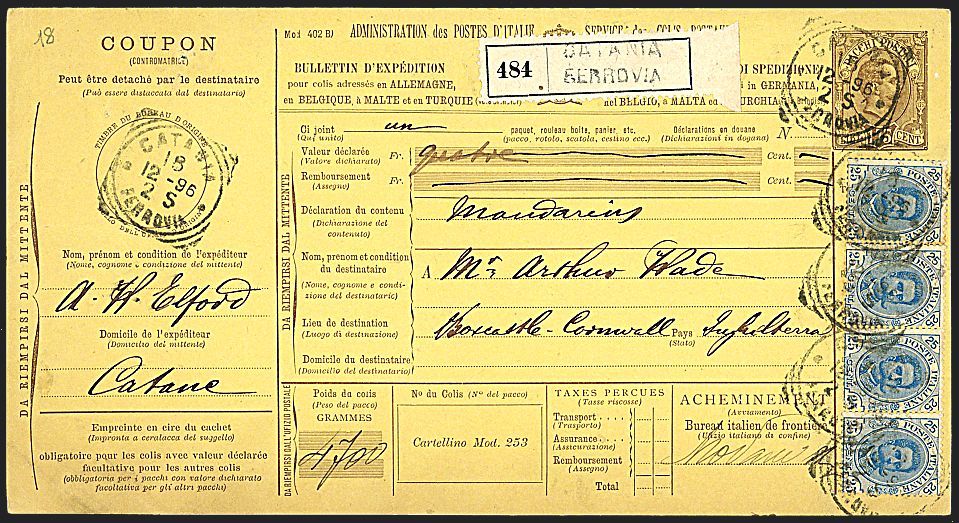 18
COUPON
(CONTROMATRICE)
Peut être detaché par le destinataire
(Può essere distaccata dal destinatario)
TIMBRE DU BUREAU D'ORIGINE
CATANIA
18
12 - 96
2 S
FERROVIA
DA RIEMPIRSI DAL MITTENTE
Nom, prénom et condition de l'expéditeur
(Nome, cognome e condizione del mittente)
A. W. Elford
Domicile de l'expéditeur
(Domicilio del mittente)
Catane
Empreinte en cire du cachet
(Impronta a ceralacca del suggello)
obligatoire pour les colis avec valeur déclarée
facultative pour les autres colis
(obbligatoria per i pacchi con valore dichiarato
facoltativa per gli altri pacchi)
Mod 402 B)
ADMINISTRATION des POSTES D'ITALIE
SERVICE des COLIS POSTAUX
484
CATANIA
FERROVIA
BULLETTIN D'EXPÉDITION
DI SPEDIZIONE
pour colis adressés en ALLEMAGNE,
in GERMANIA,
en BELGIQUE, à MALTE et en TURQUIE
nel BELGIO, a MALTA ed
Ci joint
(Qui unito)
un
paquet, rouleau boîte, panier, etc.
(pacco, rotolo, scatola, cestino ecc.)
Déclarations en douane
(Dichiarazioni in dogana)
N.
DA RIEMPIRSI DAL MITTENTE
Valeur déclarée
(Valore dichiarato)
Fr.
Cent.
Remboursement
(Assegno)
Fr.
Cent.
Déclaration du contenu
(Dichiarazione del
contenuto)
Mandarins
Nom, prénom et condition
du destinataire
(Nome, cognome e condi-
zione del destinatario)
A Mr. Arthur Wade
Lieu de destination
(Luogo di destinazione)
Boscastle - Cornwall
Pays
(Stato)
Inghilterra
Domicile du destinataire
(Domicilio del destinatario)
DA RIEMPIRSI DALL'UFIZIO POSTALE
Poids du colis
(Peso del pacco)
GRAMMES
4700
No du Colis (No del pacco)
Cartellino Mod. 253
TAXES PERCUES
(Tasse riscosse)
Transport
(Trasporto)
Assurance
(Assicurazione)
Remboursement
(Assegno)
Total
ACHEMINEMENT
(Avviamento)
Bureau italien de frontière
(Ufizio italiano di confine)
PACCHI POSTALI
CENT
25 POSTE ITALIANE 25
25 POSTE ITALIANE 25
25 POSTE ITALIANE 25
25 POSTE ITALIANE 25